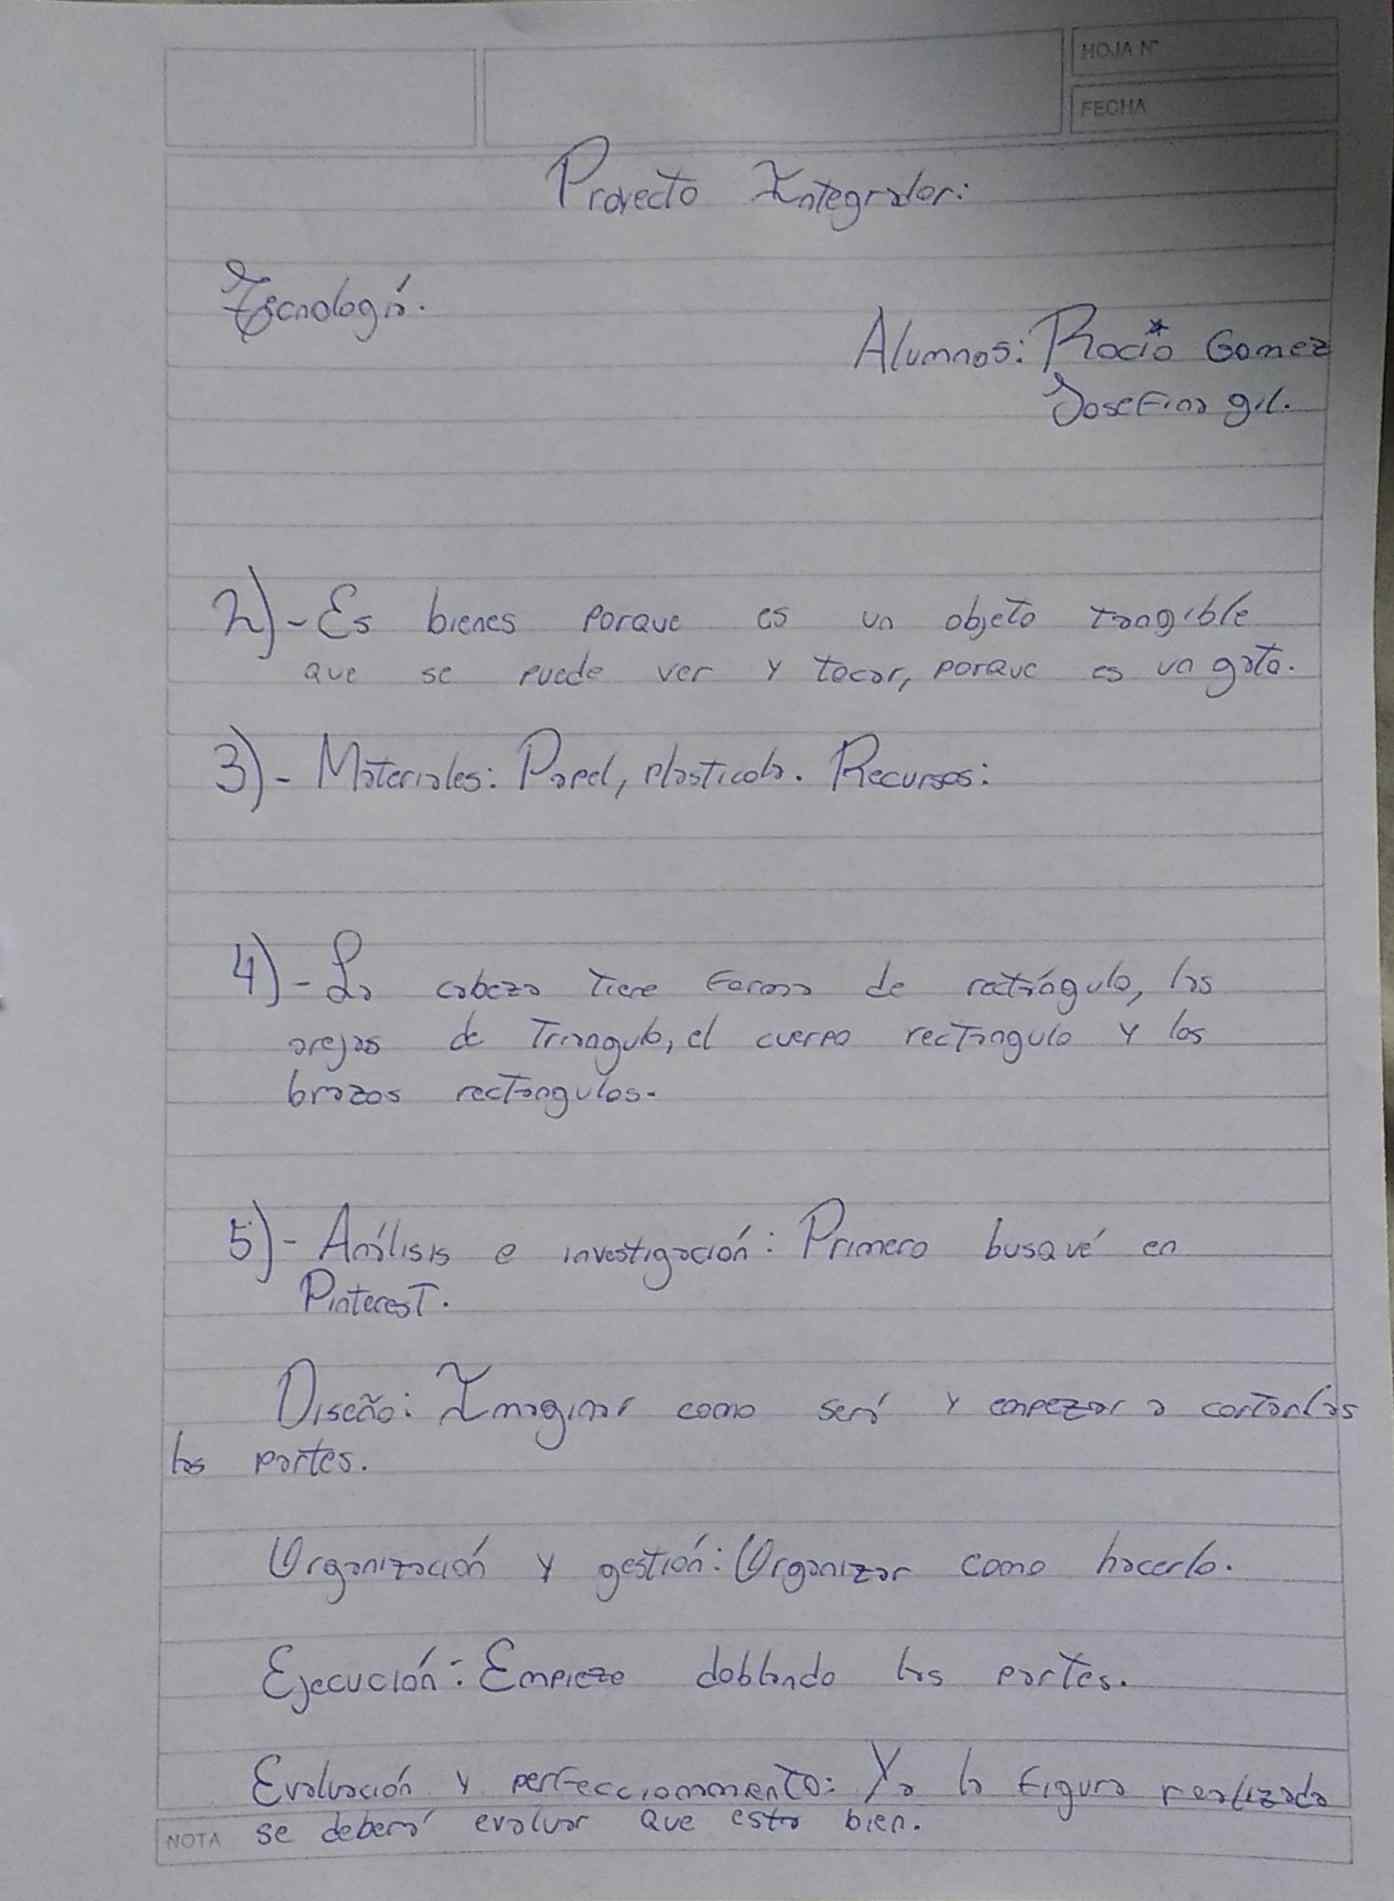 HOJA N°
FECHA
Proyecto Integrador:
Tecnología.
Alumnos: Rocio Gomez
Josefina gil.
2)- Es bienes porque es un objeto tangible
que se puede ver y tocar, porque es un gato.
3)- Materiales: Papel, plasticola. Recursos:
4)- La cabeza tiene forma de rectángulo, las
orejas de Triangulo, el cuerpo rectangulo y los
brazos rectangulos.
5)- Análisis e investigación: Primero busqué en
Pinterest.
Diseño: Imaginar como será y empezar a cortarlas
las partes.
Organización y gestión: Organizar como hacerlo.
Ejecución: Empiezo doblando las partes.
Evaluación y perfeccionamiento: Ya la figura realizada
NOTA se deberá evaluar que esta bien.